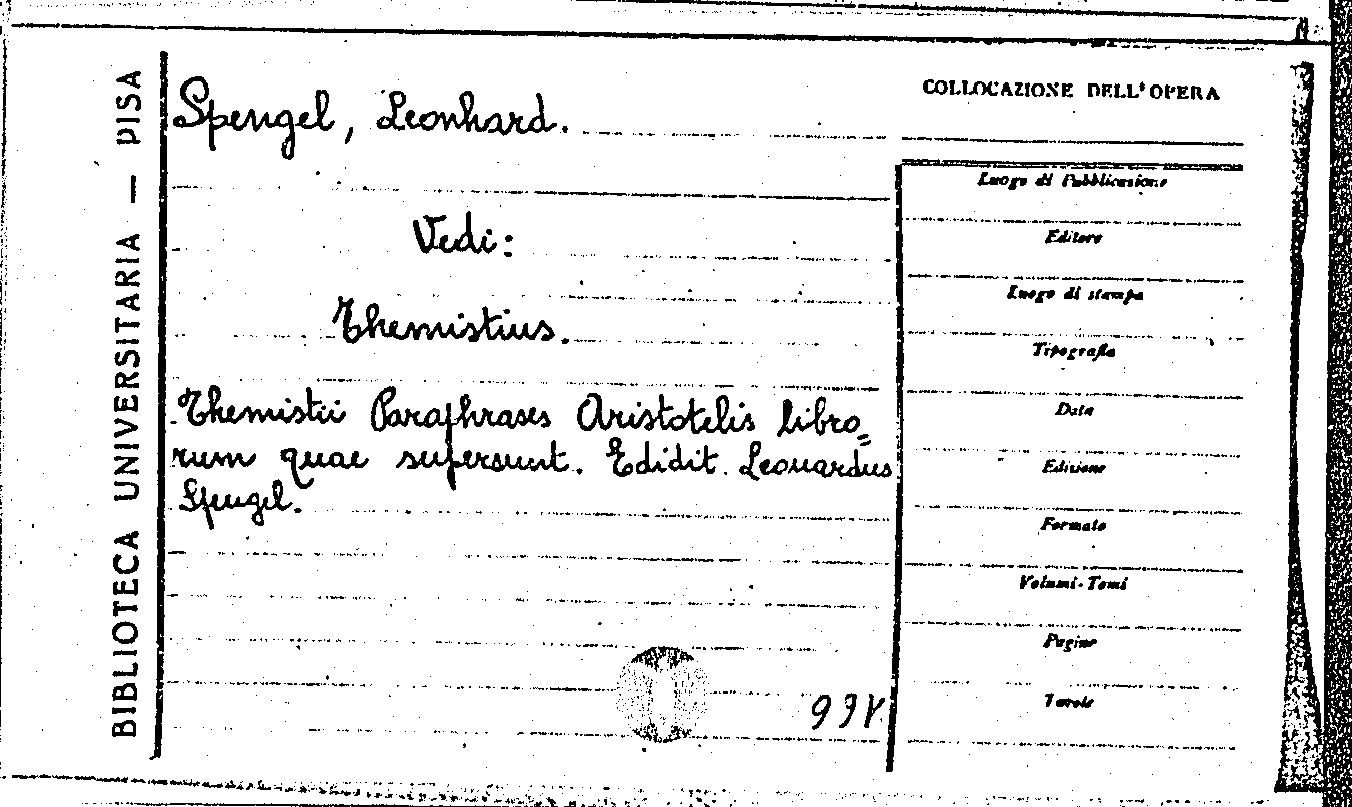 BIBLIOTECA UNIVERSITARIA — PISA
Spengel, Leonhard.
Vedi:
Themistius.
Themistii Paraphrases Aristotelis libro=
rum quae supersunt. Edidit Leonardus
Spengel.
COLLOCAZIONE DELL'OPERA
Luogo di Pubblicazione
Editore
Luogo di stampa
Tipografia
Data
Edizione
Formato
Volumi-Tomi
Pagine
Tavole